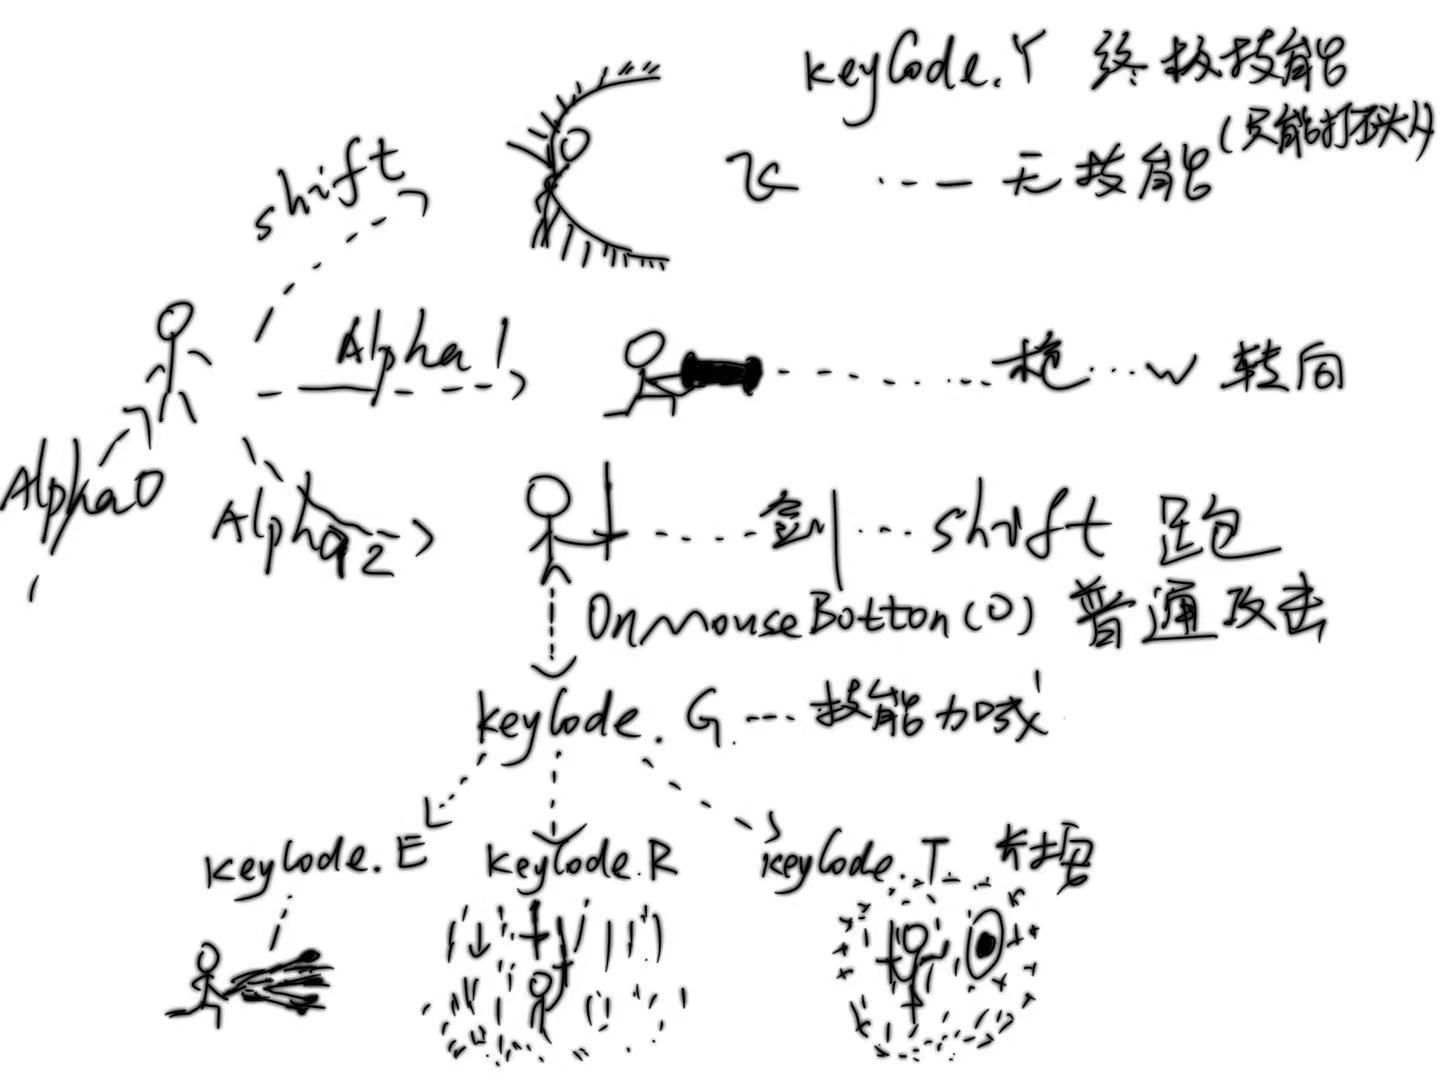 keyCode.Y 终极技能
(只能打石头人)
shift 飞 无技能
Alpha1 枪 W 转向
Alpha0
Alpha2 剑 shift 跑
OnMouseBotton(0) 普通攻击
keyCode.G 技能加成
keyCode.E keyCode.R keyCode.T